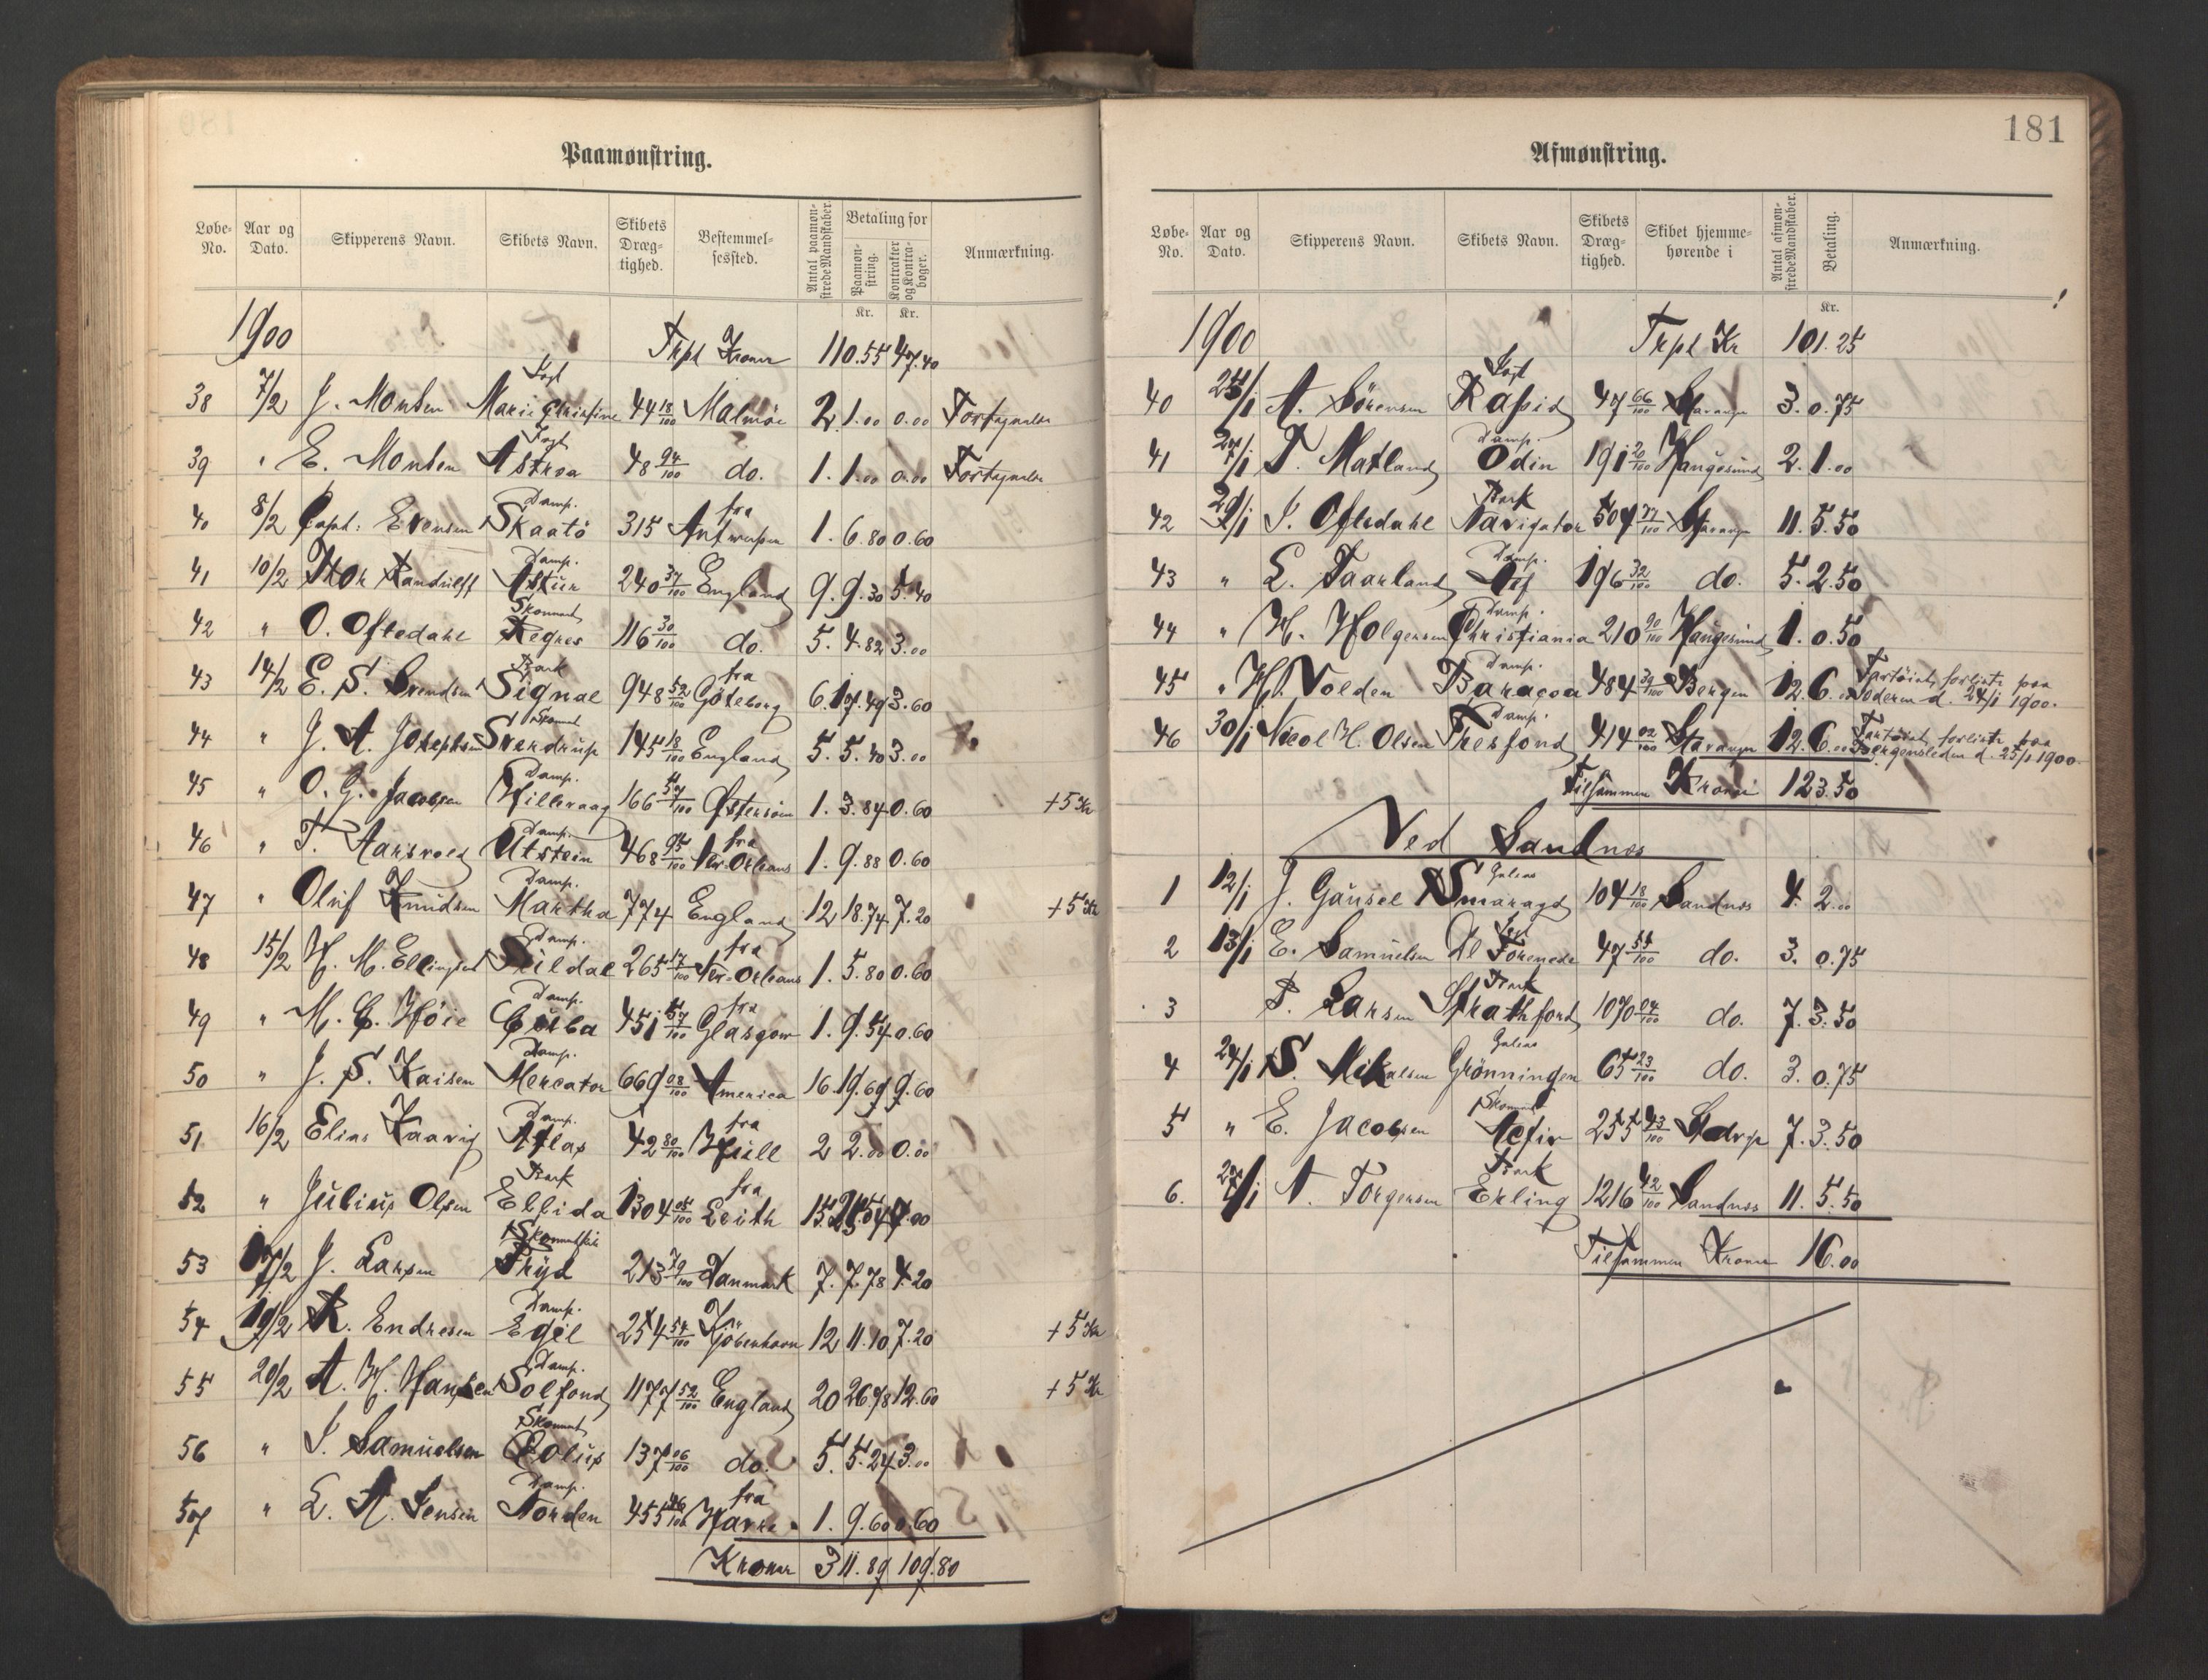 Paamønstring.
Løbe-No. Aar og Dato. Skipperens Navn. Skibets Navn. Skibets Dræg-tighed. Bestemmel-sessted. Antal paamøn-strede Mandskaber. Betaling for Paamøn-string. Kontrakter og Kontra-bøger. Anmærkning.
Kr. Kr.
1900 Trpt Kroner 110.55 47.40
38 7/2 J. Monsen Jagt Marie Christine 44 18/100 Malmöe 2 1.00 0.00 Fortegnelse
39 " E. Monsen Jagt Astrea 48 94/100 do. 1. 1.00 0.00 Fortegnelse
40 8/2 Capt: Evensen Damp. Skaatö 315 fra Antwerpen 1. 6.80 0.60
41 10/2 Thor Randulff Damp. Astur 240 37/100 England 9. 9.30 5.40
42 " O. Oftedahl Skonnert Regnes 116 30/100 do. 5. 4.82 3.00
43 14/2 E. S. Svendsen Bark Signal 948 52/100 fra Göteborg 6. 17.49 3.60
44 " J. A. Josephsen Skonnert Sverdrup 145 18/100 England 5. 5.40 3.00
45 " O. G. Jacobsen Damp. Hillevaag 166 57/100 Östersöen 1. 3.84 0.60 +5 Kr
46 " T. Aarsvold Damp. Utstein 468 95/100 fra New-Orleans 1. 9.88 0.60
47 " Oluf Knudsen Damp. Martha 774 England 12 18.74 7.20 +5 Kr
48 15/2 H. M. Ellingsen Damp. Suldal 265 17/100 fra New-Orleans 1. 5.80 0.60
49 " M. C. Höie Damp. Cuba 451 57/100 fra Glasgow 1. 9.54 0.60
50 " J. S. Kaisen Damp. Mercator 669 08/100 America 16. 19.69 9.60
51 16/2 Elias Kaavig Damp. Atlas 42 80/100 fra Hull 2 2.00 0.00
52 " Julius Olsen Bark Ellida 1304 05/100 fra Leith
53 17/2 J. Larsen Fryd 213 79/100 Danmark 7. 7.78 4.20
54 19/2 R. Endresen Damp. Egil 254 54/100 Kjöbenhavn 12 11.10 7.20 +5 Kr
55 20/2 A. H. Hansen Damp. Solfond 1177 52/100 England 20 26.78 12.60 +5 Kr
56 " S. Samuelsen Skonnert Eolus 137 06/100 do. 5. 5.24 3.00
57 " L. A. Jensen Damp. Norden 455 46/100 fra Havre 1. 9.60 0.60
Kroner 311.89 109.80
181
Afmønstring.
Løbe-No. Aar og Dato. Skipperens Navn. Skibets Navn. Skibets Dræg-tighed. Skibet hjemme-hørende i Antal afmøn-strede Mandskaber. Betaling. Anmærkning.
Kr.
1900 Trpt Kr 101.25
40 25/1 A. Sörensen Jagt Rapid 47 66/100 Stavanger 3. 0.75
41 27/1 T. Matland Damp. Odin 191 20/100 Haugesund 2. 1.00
42 29/1 S. Oftedahl Bark Navigator 504 77/100 Stavanger 11. 5.50
43 " L. Taarland Damp. 196 32/100 do. 5. 2.50
44 " H. Holgersen Damp. Christiania 210 90/100 Haugesund 1. 0.50
45 " H. Volden Damp. Baracoa 484 39/100 Bergen 12. 6.00 Fartöiet forliste paa Jæderen d. 24/1 1900.
46 30/1 Nicol H. Olsen Damp. Thesfond 414 02/100 Stavanger 12. 6.00 Fartöiet forliste paa Bergensleden d. 25/1 1900.
Tilsammen Kroner 123.50
Ved Sandnes
1 12/1 J. Gausel Galeas Smaragd 104 18/100 Sandnes 4. 2.00
2 13/1 E. Samuelsen Jagt De Forenede 47 54/100 do. 3. 0.75
3 P. Larsen Bark Strathford 1070 04/100 do. 7. 3.50
4 24/1 S. Mikalsen Galeas Grönningen 65 23/100 do. 3. 0.75
5 " E. Jacobsen Skonnert Activ 255 43/100 7. 3.50
6. 27/1 A. Torgersen Bark Erling 1216 42/100 Sandnes 11. 5.50
Tilsammen Kroner 16.00